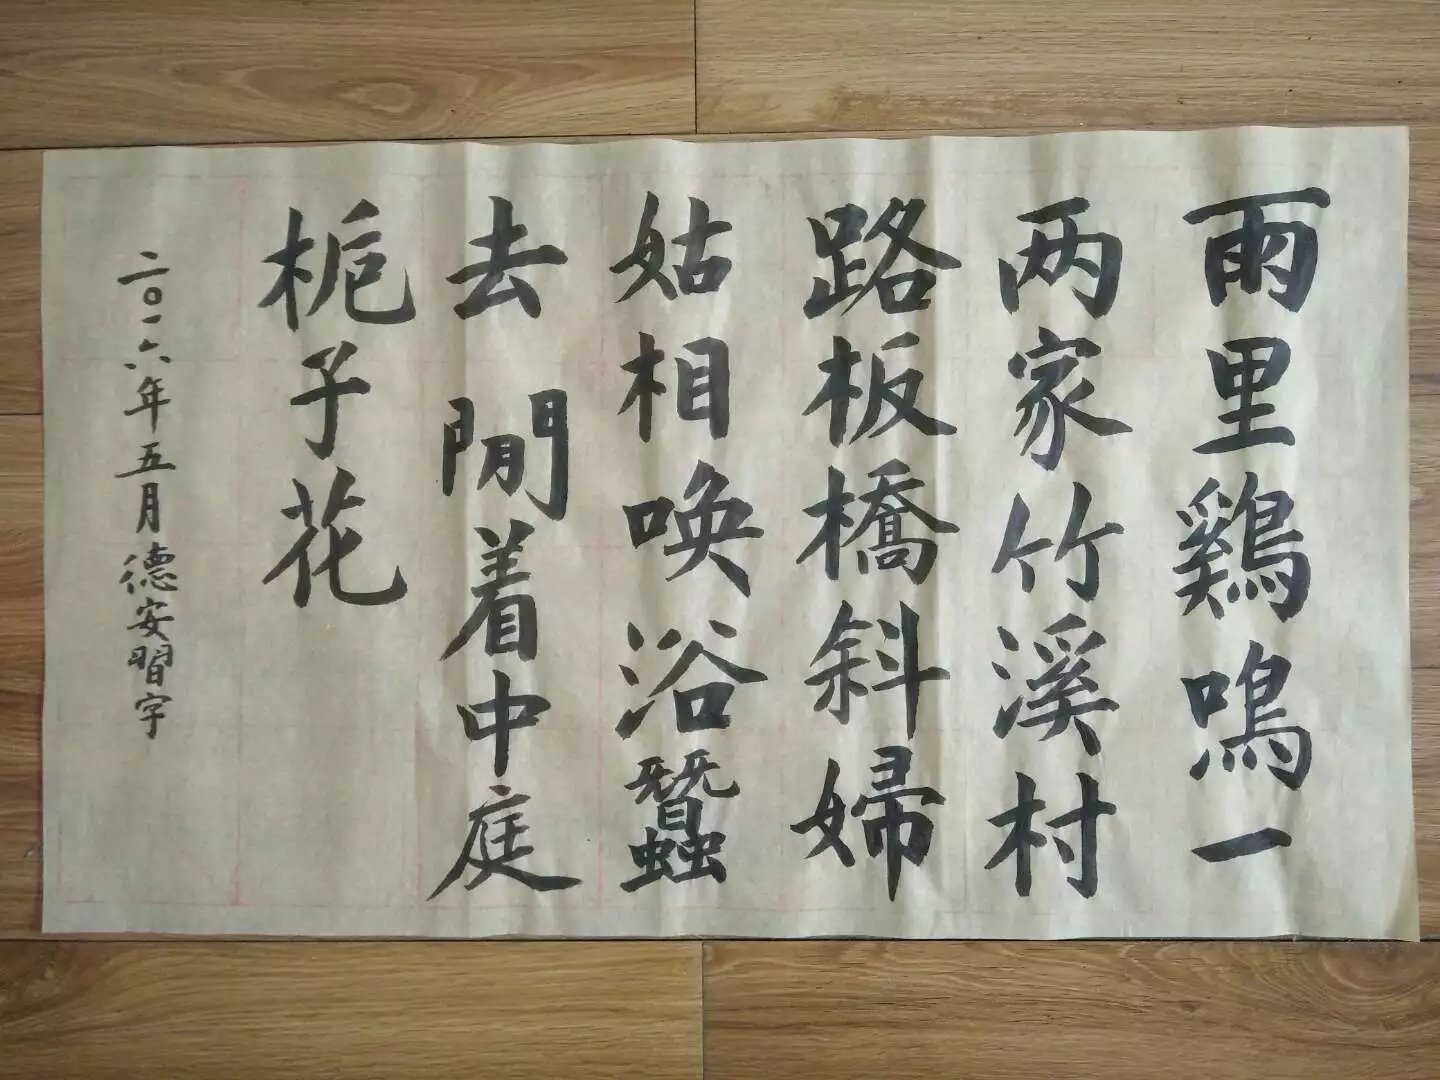 雨里鷄鳴一
两家竹溪村
路板橋斜婦
姑相唤浴蠶
去閒着中庭
栀子花
二〇一六年五月德安習字